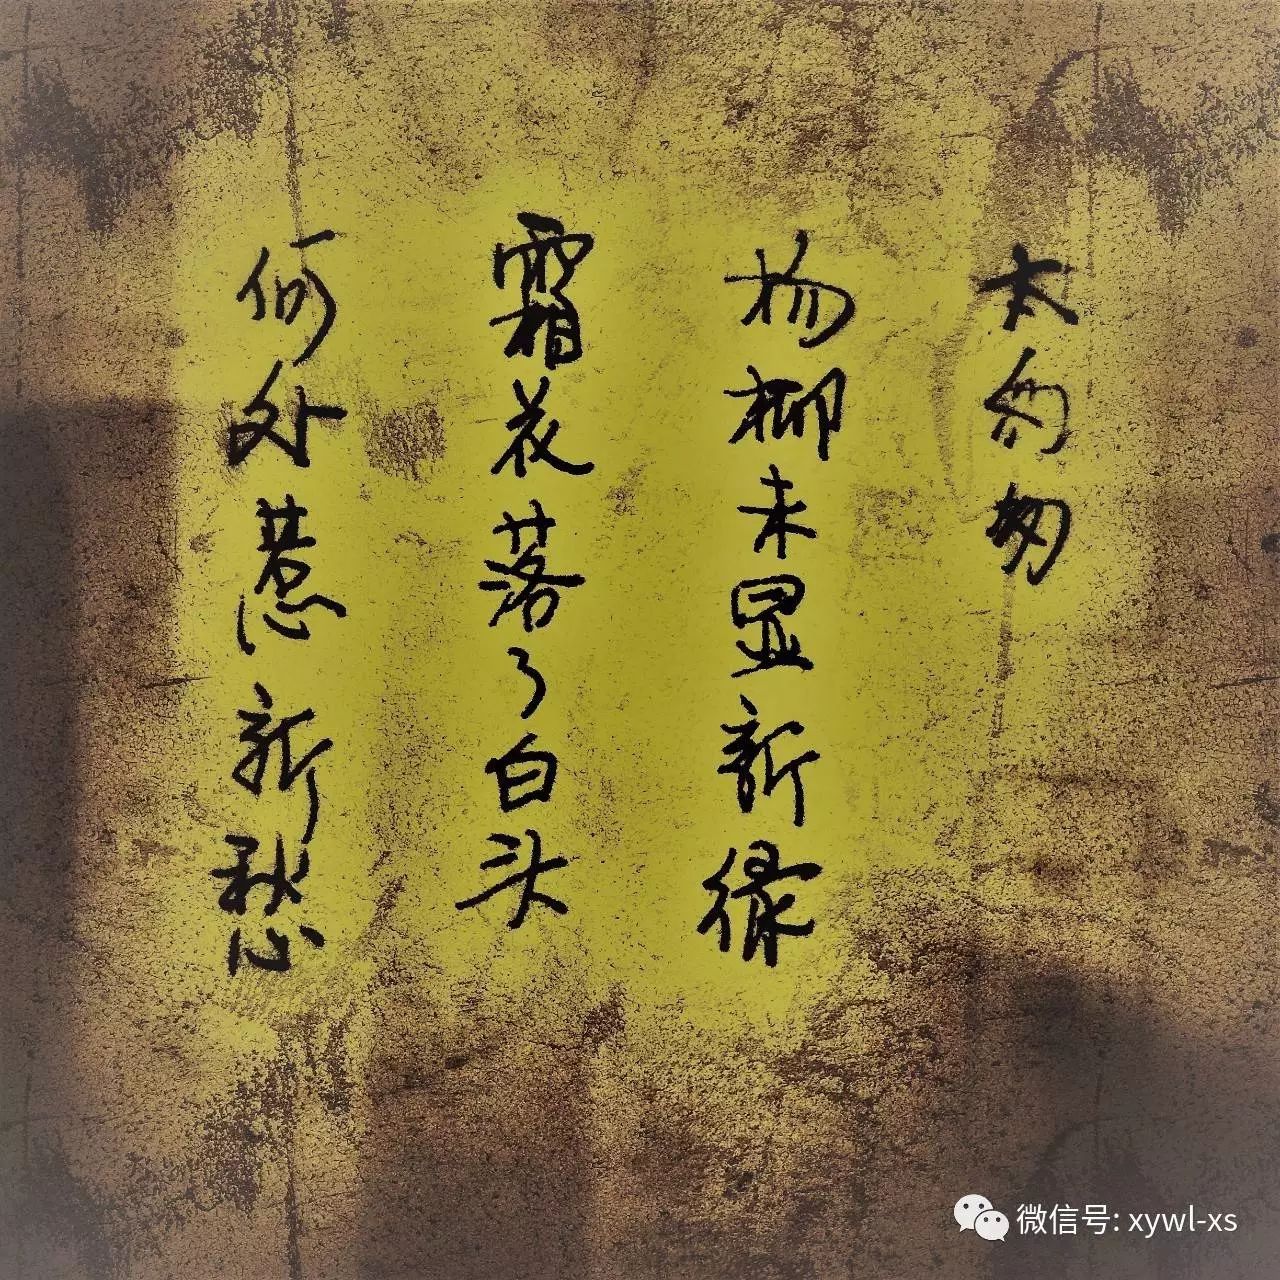 太匆匆
杨柳未显新绿
霜花落了白头
何处惹新愁
微信号: xywl-xs